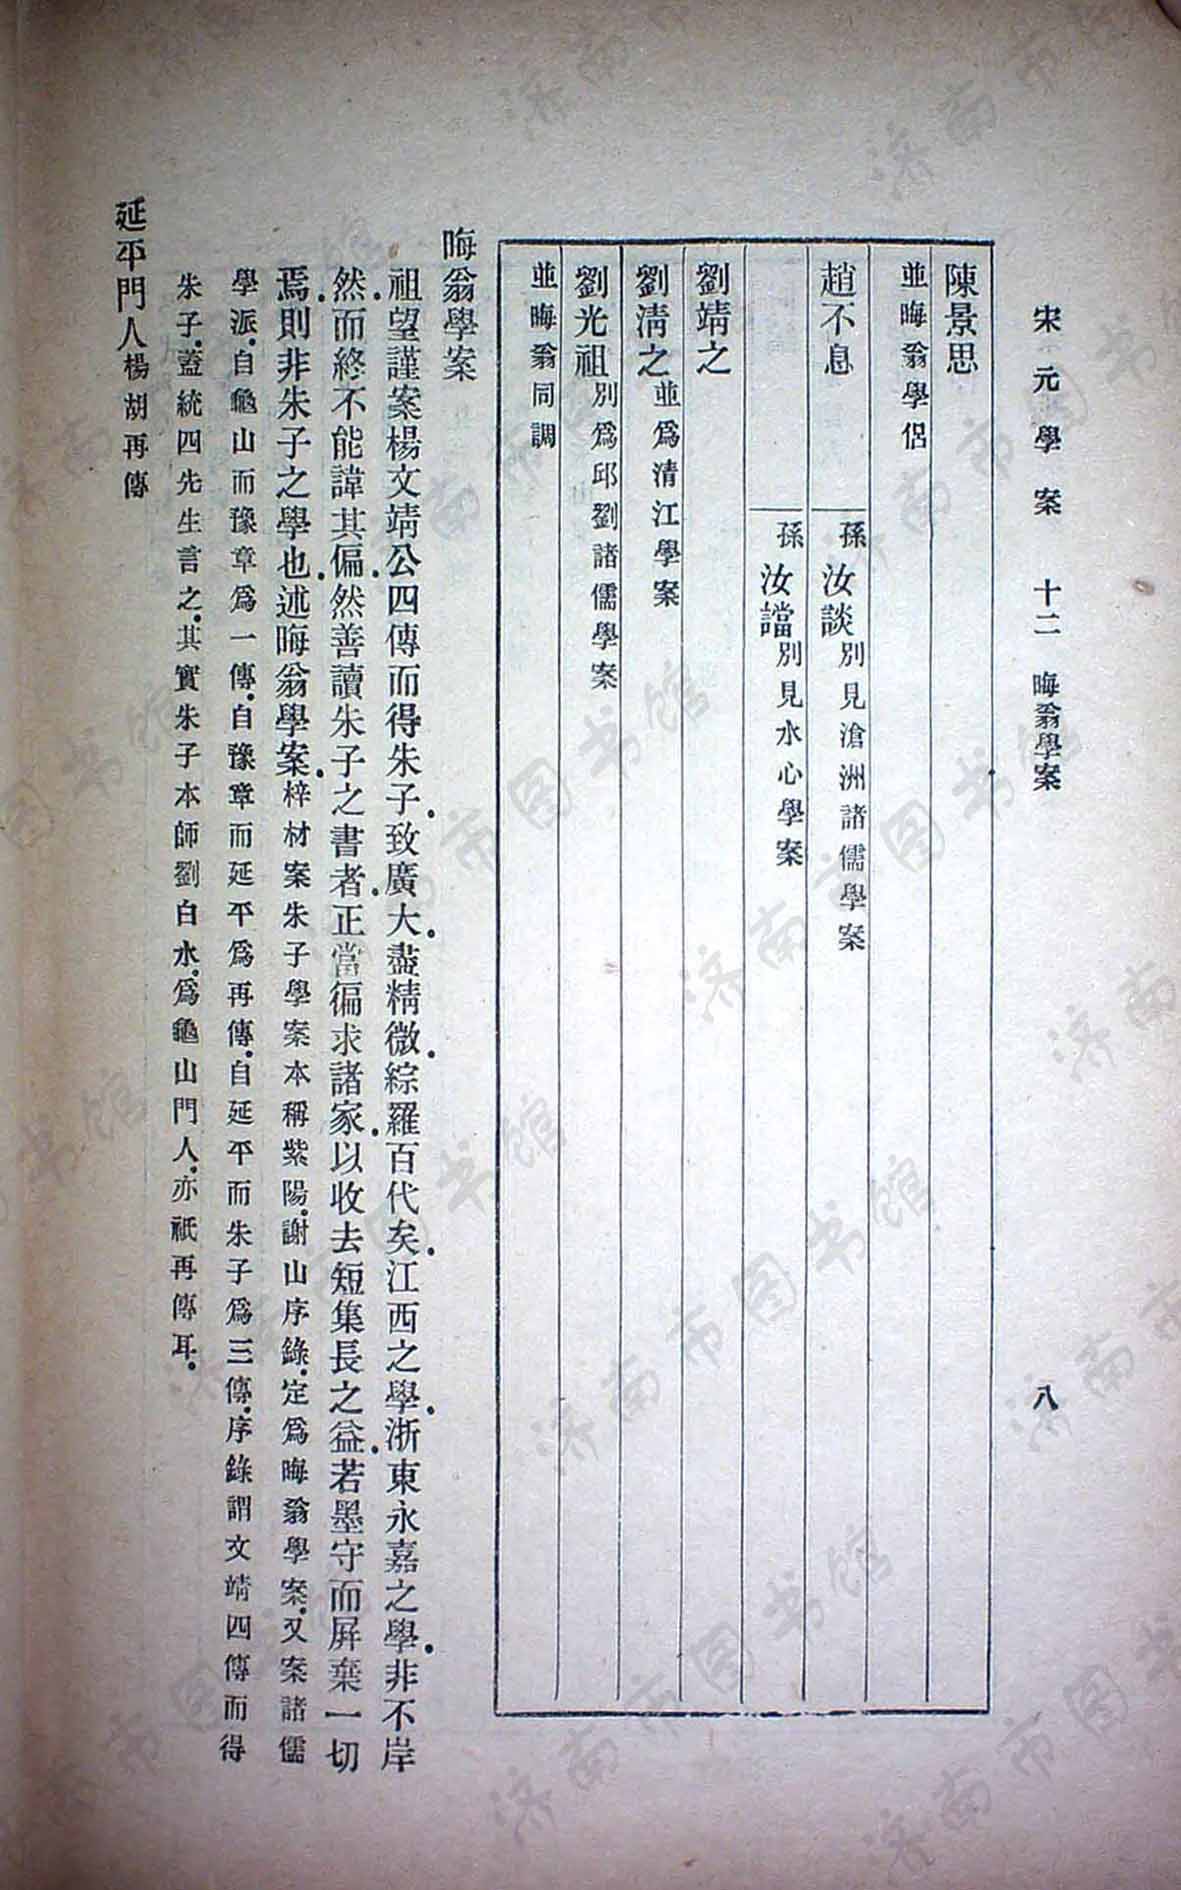 宋元學案 十二 晦翁學案 八
陳景思
並晦翁學侶
趙不息 孫汝談別見滄洲諸儒學案
孫汝讜別見水心學案
劉靖之
劉淸之並爲清江學案
劉光祖別爲邱劉諸儒學案
並晦翁同調
晦翁學案
祖望謹案楊文靖公四傳而得朱子.致廣大.盡精微.綜羅百代矣.江西之學.浙東永嘉之學.非不岸
然.而終不能諱其偏.然善讀朱子之書者.正當徧求諸家.以收去短集長之益.若墨守而屏棄一切
焉.則非朱子之學也.述晦翁學案.梓材案朱子學案本稱紫陽.謝山序錄.定爲晦翁學案.又案諸儒
學派.自龜山而豫章爲一傳.自豫章而延平爲再傳.自延平而朱子爲三傳.序錄謂文靖四傳而得
朱子.蓋統四先生言之.其實朱子本師劉白水.爲龜山門人.亦祇再傳耳.
延平門人楊胡再傳
济南市图书馆